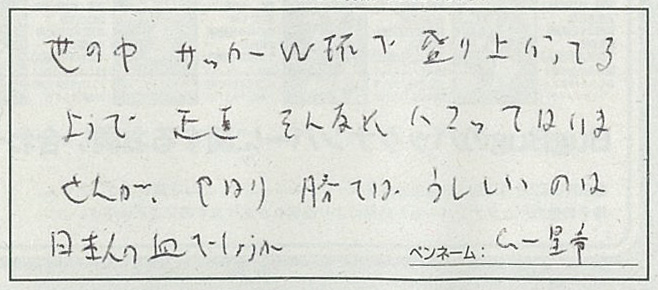 世の中 サッカーW杯で 登り上がってる
ようで 正直 そんなれ ハマってはいま
せんが、やはり 勝てば うれしいのは
日本人の血でしょうか
ペンネーム： 一星